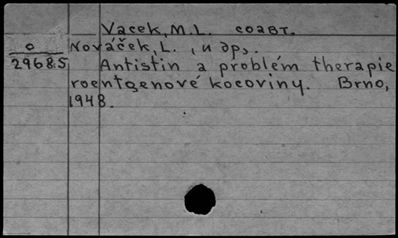 Vacek, M.L. соавт.
o
Nováček, L., и др,.
29685
Antistin a problém therapie
roentgenové kocoviny. Brno,
1948.